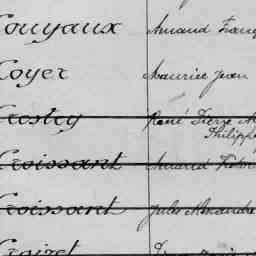 Couyaux Amand Franç
Coyer Maurice Jean
Crosley René Pierre
Philipp
Croissant Amand
Croissant Jules Alexandre
Croizet